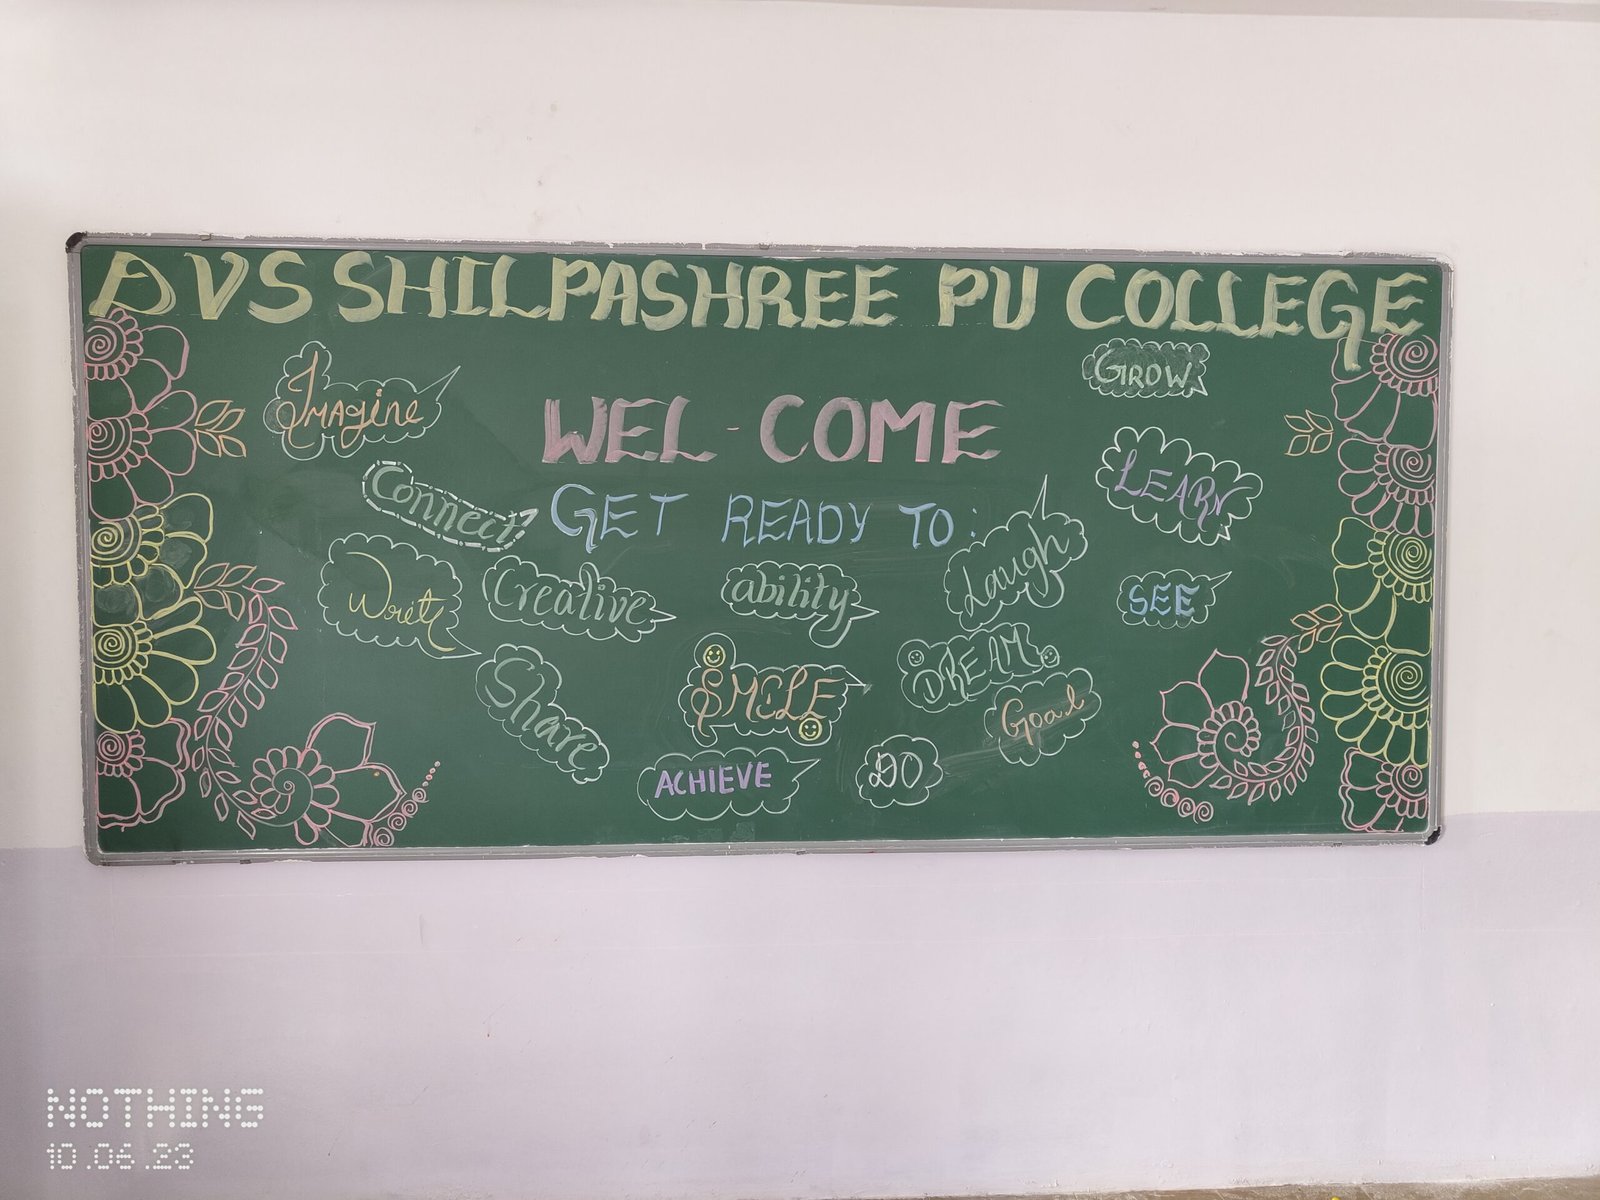 DVS SHILPASHREE PU COLLEGE
Imagine
GROW
WEL-COME
LEARN
Connect
GET READY TO:
Laugh
Wret
Creative
ability
SEE
Share
SMILE
DREAM
Goal
ACHIEVE
DO
NOTHING
10.06.23